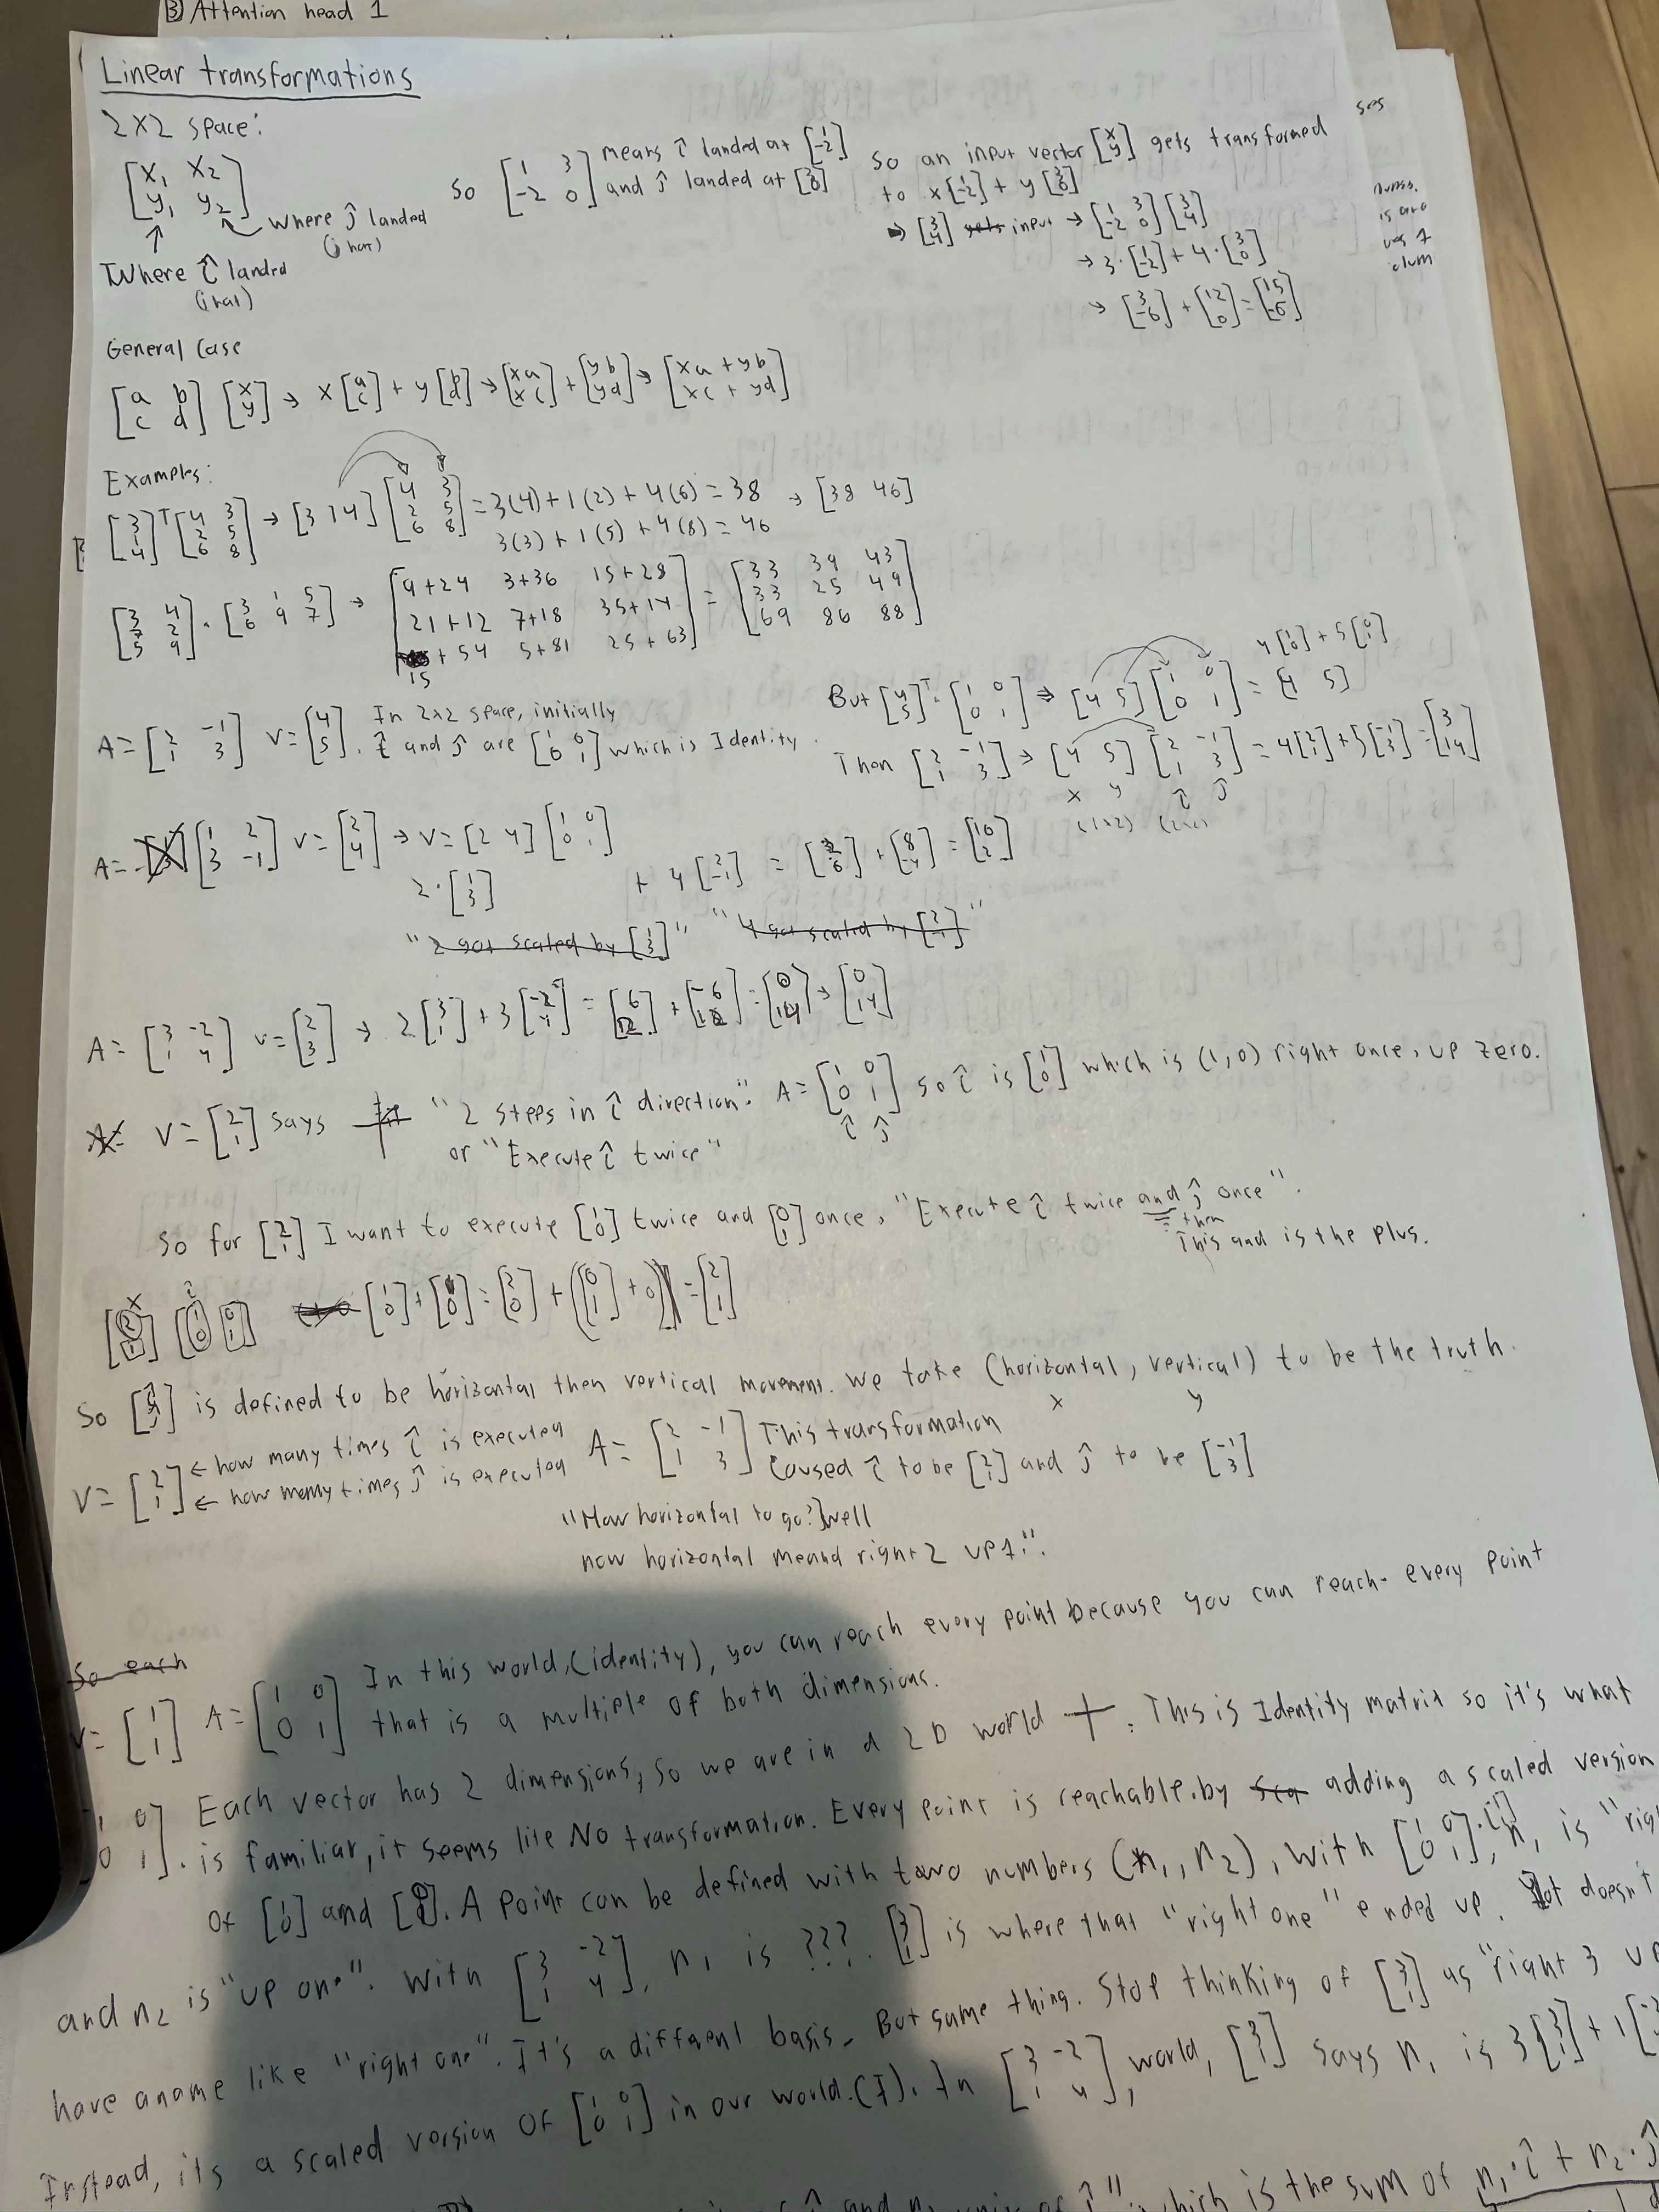 ③ Attention head 1
Linear transformations
2x2 space:
[x₁ x₂; y₁ y₂]
where ĵ landed
(j hat)
Where î landed
(i hat)
So [1 3; -2 0] means î landed at [1; -2]
and ĵ landed at [3; 0]
So an input vector [x; y] gets transformed
to x[1; -2] + y[3; 0]
→ [3; 4] input → [1 3; -2 0][3; 4]
→ 3·[1; -2] + 4·[3; 0]
→ [3; -6] + [12; 0] = [15; -6]
General Case
[a b; c d] [x; y] → x[a; c] + y[b; d] → [xa; xc] + [yb; yd] → [xa + yb; xc + yd]
Examples:
[3; 1; 4]ᵀ [4 3; 2 5; 6 8] → [3 1 4] [4 3; 2 5; 6 8] = 3(4) + 1(2) + 4(6) = 38 → [38 46]
3(3) + 1(5) + 4(8) = 46
[3 4; 7 2; 5 9] · [3 1 5; 6 9 7] → [9+24 3+36 15+28; 21+12 7+18 35+14; 15+54 5+81 25+63] = [33 39 43; 33 25 49; 69 86 88]
A = [2 -1; 1 3] v = [4; 5]. In 2x2 space, initially
î and ĵ are [1 0; 0 1] which is Identity.
4[1; 0] + 5[0; 1]
But [4; 5]ᵀ · [1 0; 0 1] ⇒ [4 5] [1 0; 0 1] = [4 5]
Then [2 -1; 1 3] → [4 5] [2 -1; 1 3] = 4[2; 1] + 5[-1; 3] = [3; 19]
x y î ĵ
(1x2) (2x2)
A = [1 2; 3 -1] v = [2; 4] → v = [2 4] [1 0; 0 1]
2·[1; 3] + 4[2; -1] = [2; 6] + [8; -4] = [10; 2]
"2 got scaled by [1; 3]" "4 got scaled by [2; -1]"
A = [3 -2; 1 4] v = [2; 3] → 2[3; 1] + 3[-2; 4] = [6; 2] + [-6; 12] = [0; 14] → [0; 14]
V = [2; 1] says "2 steps in î direction". A = [1 0; 0 1] so î is [1; 0] which is (1, 0) right once, up zero.
î ĵ
or "Execute î twice"
So for [2; 1] I want to execute [1; 0] twice and [0; 1] once, "Execute î twice and ĵ once".
then
This and is the plus.
[2; 1] [1 0; 0 1] [1; 0] + [1; 0] = [2; 0] + ([0; 1] + 0) = [2; 1]
So [x; y] is defined to be horizontal then vertical movement. We take (horizontal, vertical) to be the truth.
x y
V = [2; 1] ← how many times î is executed
← how many times ĵ is executed
A = [2 -1; 1 3] This transformation
caused î to be [2; 1] and ĵ to be [-1; 3]
"How horizontal to go? Well
now horizontal meand right 2 up 1".
So each
v = [1; 1] A = [1 0; 0 1] In this world, (identity), you can reach every point because you can reach every point
that is a multiple of both dimensions.
Each vector has 2 dimensions, so we are in a 2D world +. This is Identity matrix so it's what
is familiar, it seems like No transformation. Every point is reachable by adding a scaled version
of [1; 0] and [0; 1]. A point can be defined with two numbers (n₁, n₂), with [1 0; 0 1]·[1; 1], n₁ is
and n₂ is "up one". With [3 -2; 1 4], n₁ is ???. [3; 1] is where that "right one" ended up. doesn't
have a name like "right one". It's a diffrent basis. But same thing. Stop thinking of [3; 1] as "right 3
Instead, its a scaled version of [1 0; 0 1] in our world. (I). In [3 -2; 1 4], world, [3; 1] says n₁ is 3[3; 1] + 1
which is the sum of n₁·î + n₂·ĵ